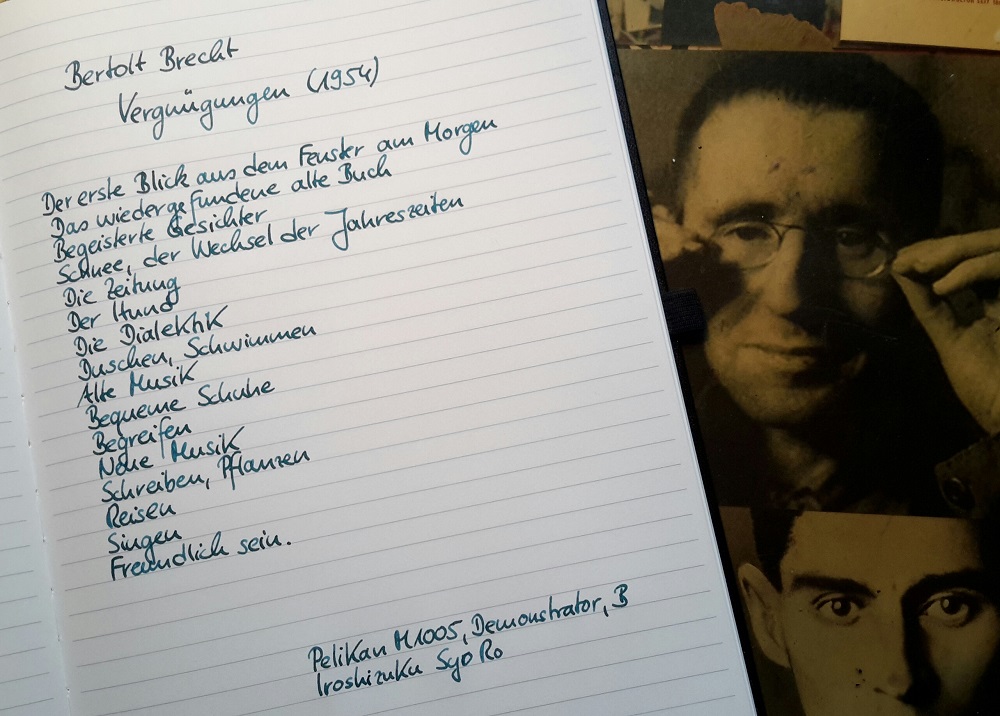 Bertolt Brecht
Vergnügungen (1954)
Der erste Blick aus dem Fenster am Morgen
Das wiedergefundene alte Buch
Begeisterte Gesichter
Schnee, der Wechsel der Jahreszeiten
Die Zeitung
Der Hund
Die Dialektik
Duschen, Schwimmen
Alte Musik
Bequeme Schuhe
Begreifen
Neue Musik
Schreiben, Pflanzen
Reisen
Singen
Freundlich sein.
Pelikan M1005, Demonstrator, B
Iroshizuku Syo Ro